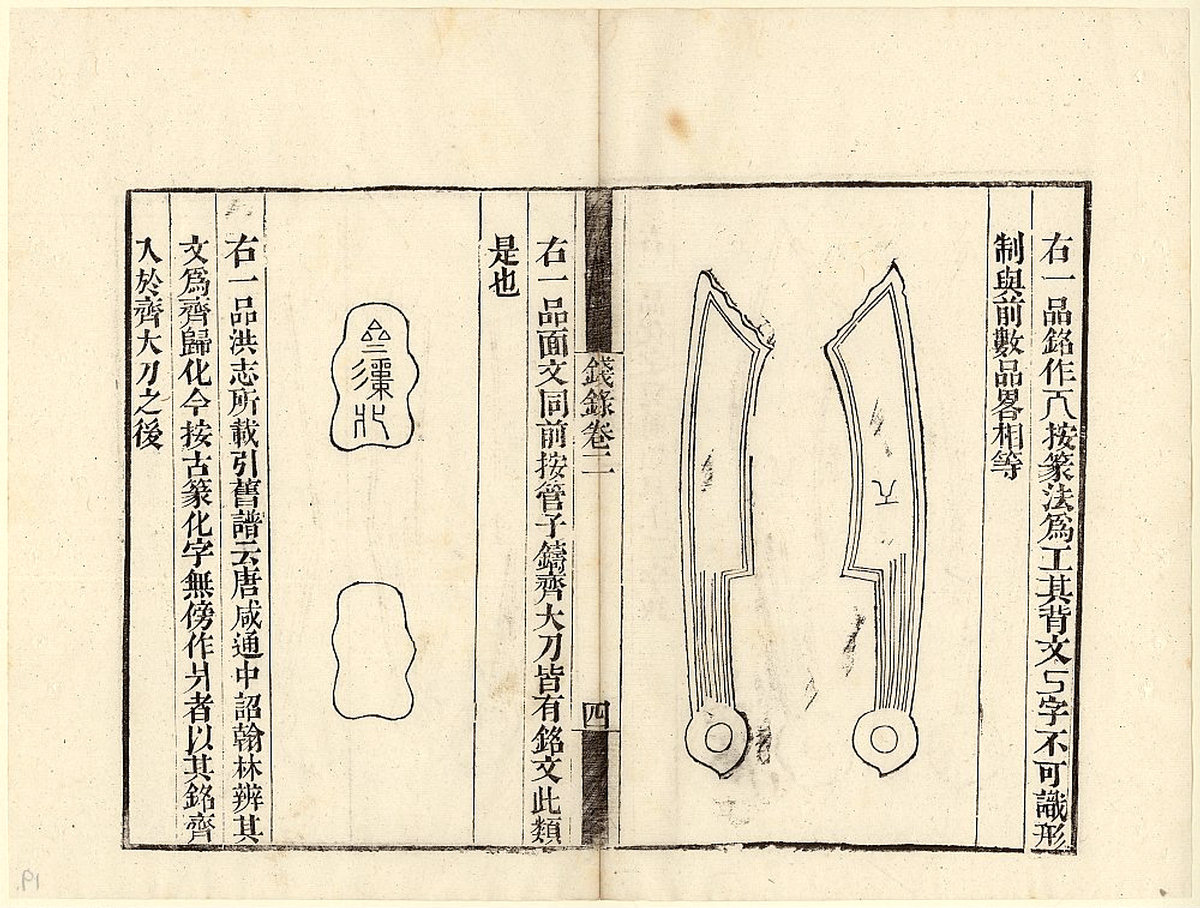 右一品銘作𠀾按篆法為工其背文丂字不可識形
制與前數品畧相等
錢錄卷二
四
右一品面文同前按管子鑄齊大刀皆有銘文此類
是也
右一品洪志所載引舊譜云唐咸通中詔翰林辨其
文爲齊歸化今按古篆化字無傍作爿者以其銘齊
入於齊大刀之後
19.